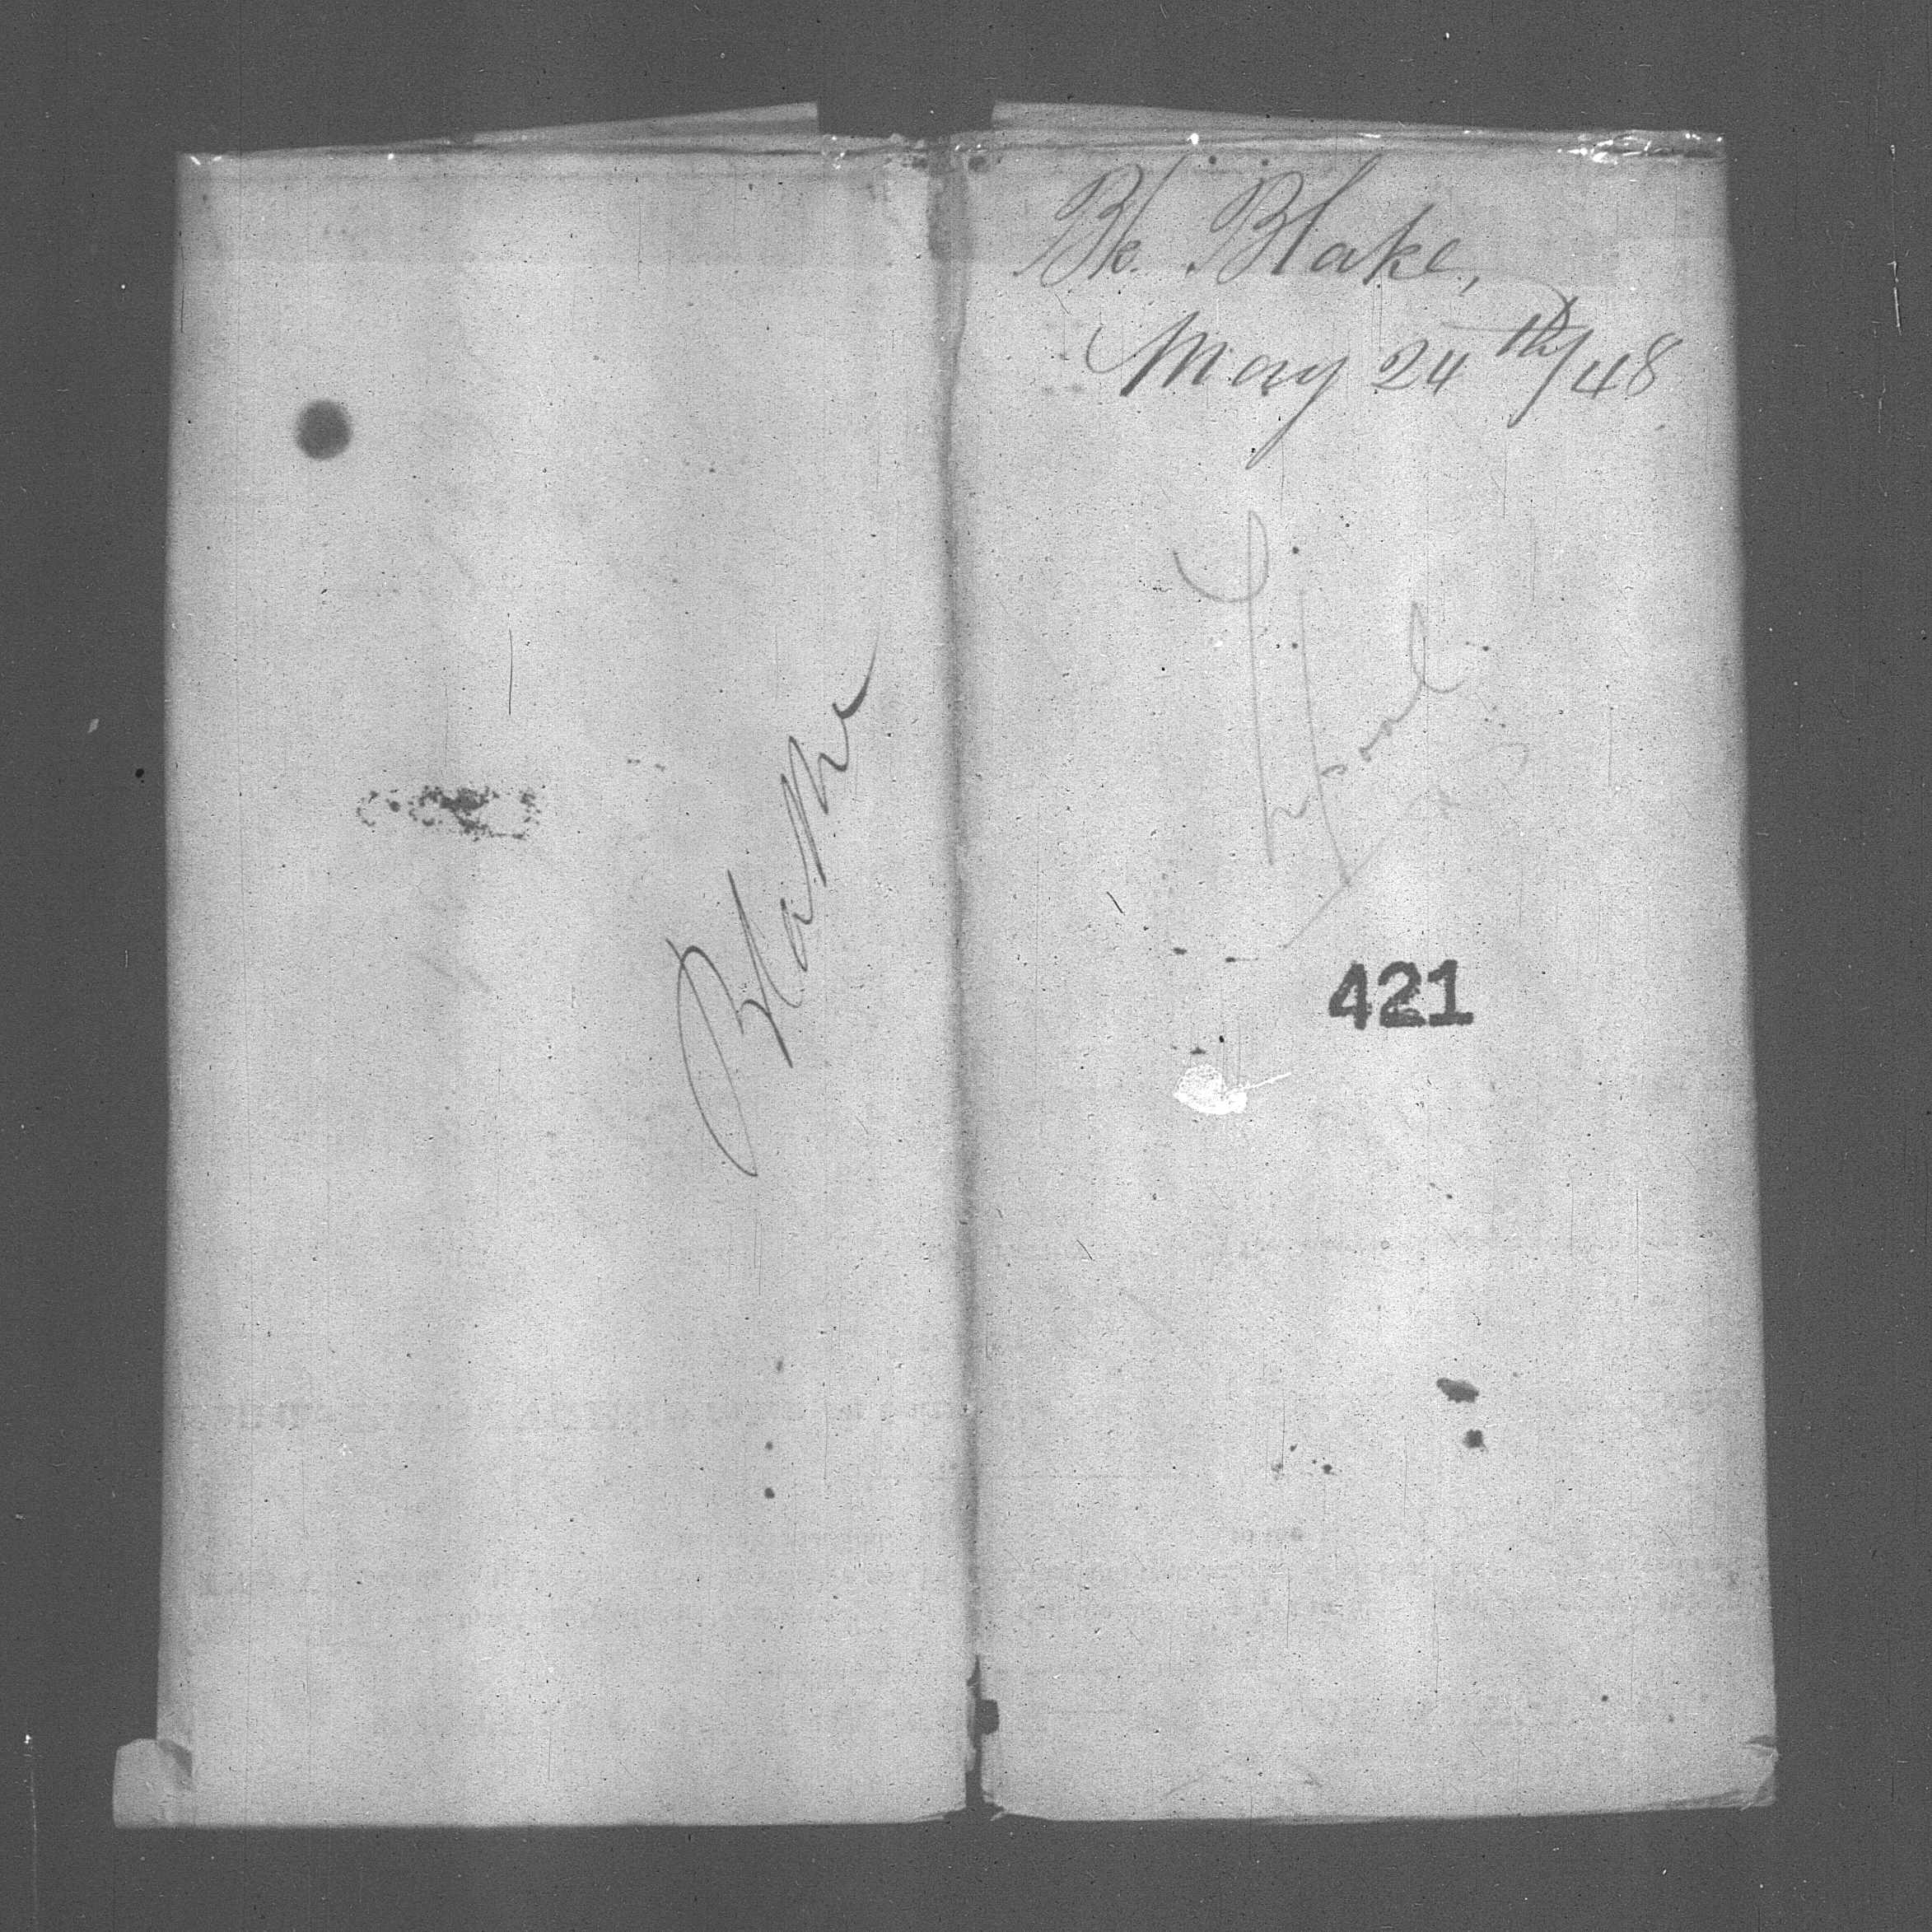 Bk. Blake,
May 24th/48
421
Blake